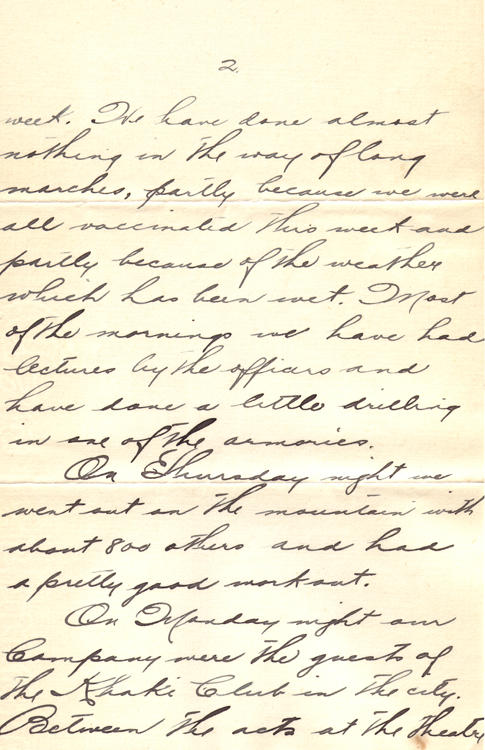 2.
week. We have done almost
nothing in the way of long
marches, partly because we were
all vaccinated this week and
partly because of the weather
which has been wet. Most
of the mornings we have had
lectures by the officers and
have done a little drilling
in one of the armories.
On Thursday night we
went out on the mountain with
about 800 others and had
a pretty good work out.
On Monday night our
Company were the guests of
the Khaki Club in the city.
Between the acts at the theatre